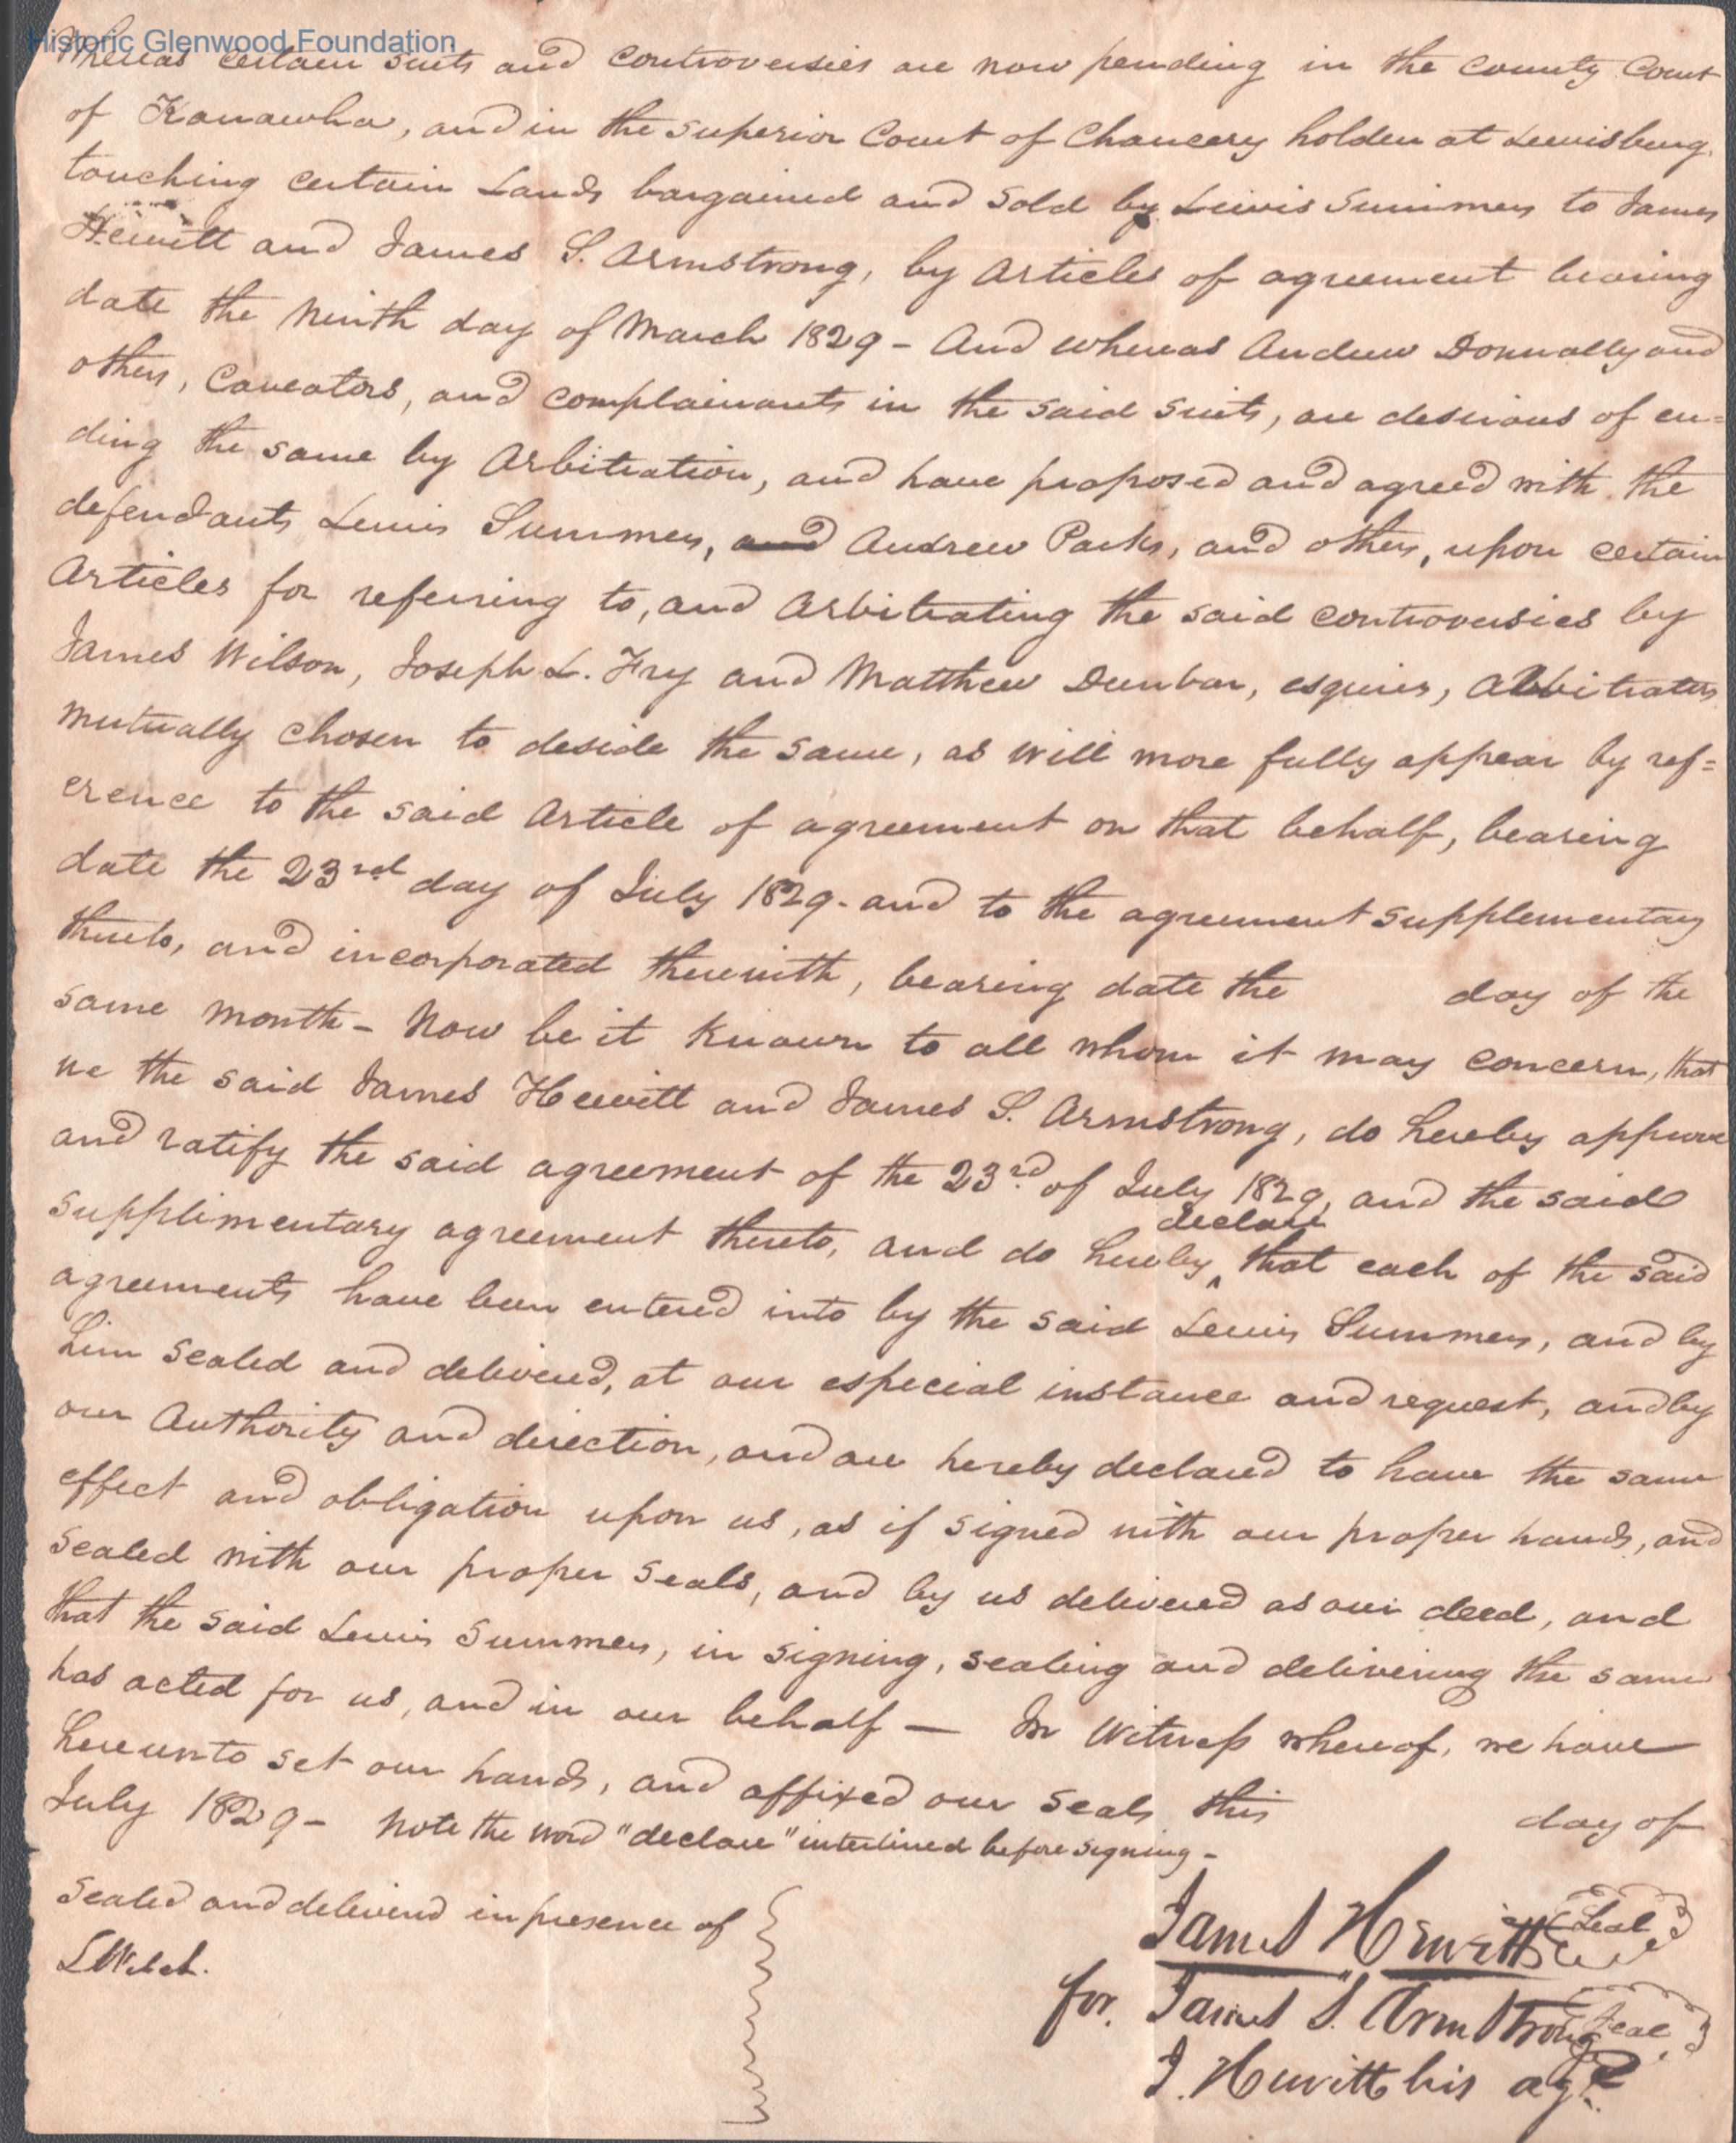 Historic Glenwood Foundation
Whereas certain suits and controversies are now pending in the county Court
of Kanawha, and in the Superior Court of Chancery holden at Lewisburg,
touching certain Lands bargained and sold by Lewis Summers to James
Hewitt and James S. Armstrong, by Articles of agreement bearing
date the Ninth day of March 1829 - And whereas Andrew Donnally and
others, Caveators, and complainants in the said suits, are desirous of en=
ding the same by Arbitration, and have proposed and agreed with the
defendants Lewis Summers, and Andrew Parks, and others, upon certain
Articles for referring to, and Arbitrating the said controversies by
James Wilson, Joseph L. Fry and Matthew Dunbar, esquires, Arbitrators
mutually chosen to deside the same, as will more fully appear by ref=
erence to the said Article of agreement on that behalf, bearing
date the 23rd day of July 1829. and to the agreement supplementary
thereto, and incorporated therewith, bearing date the day of the
same month - Now be it known to all whom it may concern, that
we the said James Hewitt and James S. Armstrong, do hereby approve
and ratify the said agreement of the 23rd of July 1829, and the said
declare
supplimentary agreement thereto, and do hereby ‸ that each of the said
agreements have been entered into by the said Lewis Summers, and by
him sealed and delivered, at our especial instance and request, and by
our Authority and direction, and are hereby declared to have the same
effect and obligation upon us, as if signed with our proper hands, and
sealed with our proper seals, and by us delivered as our deed, and
that the said Lewis Summers, in signing, sealing and delivering the same
has acted for us, and in our behalf — In Witness whereof, we have
hereunto set our hands, and affixed our seals this day of
July 1829 - Note the word "declare" interlined before signing -
Sealed and delivered in presence of
L Welch.
James Hewitt Seal
for. James S. Armstrong Seal
J. Hewitt his agt.